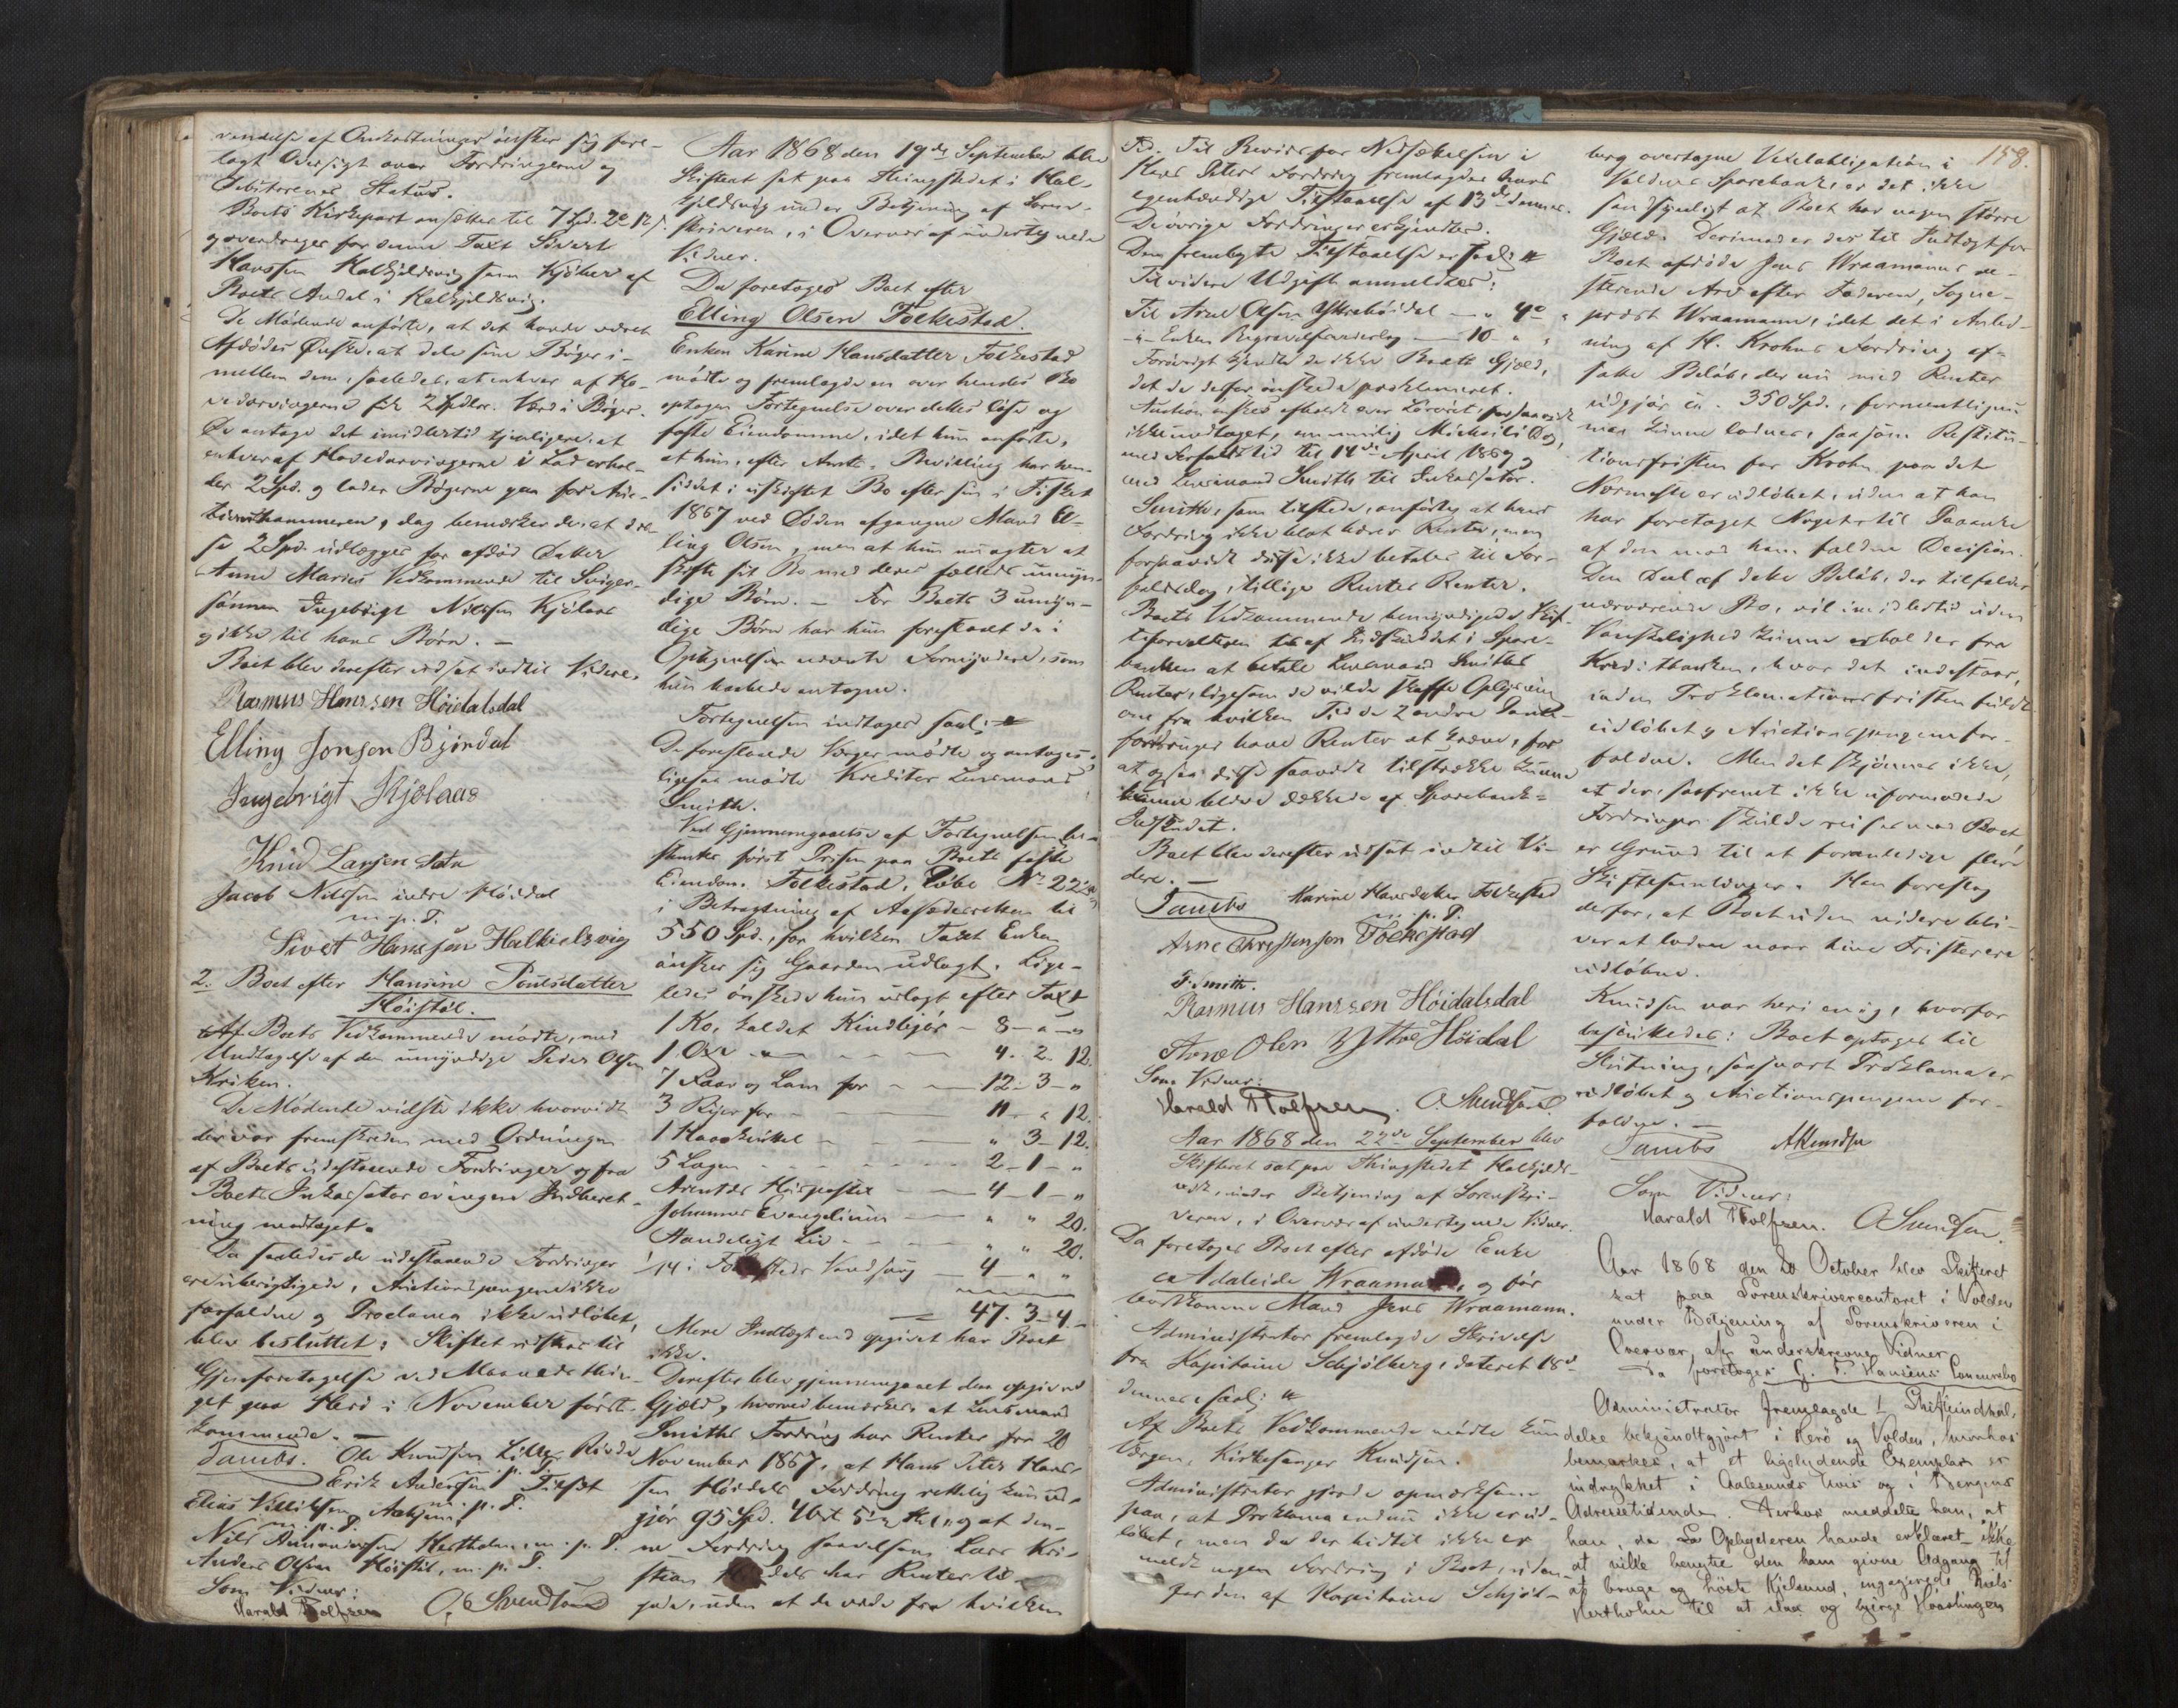 vendelse af Omkostninger ønsker sig fore-
lagt Oversigt over Fordringerne og
Debitorenes Status.
Boets Kirkepart ansættes til 7 Spd. 2 12 s.
og overdrages for denne Taxt Sivert
Hanssen Halkjeldsvig som Kjøber af
Boets Andel i Halkjeldsvig.
De Mødende anførte, at det havde været
Afdødes Ønske, at dele sine Bøger i-
mellem dem, saaledes, at enhver af Ho-
vedarvingerne fik 2 Spdlr. Værd i Bøger.
De antage det imidlertid tjenligere, at
enhver af Hovedarvingerne i Lod erhol-
der 2 Spd. og lader Bøgerne gaa for Auk-
tionshammeren, dog bemærkes de, at dis-
se 2 Spd. udlægges for afdød Datter
Anne Maries Vedkommende til Sviger-
sønnen Ingebrigt Nilssen Kjølaas
og ikke til hans Børn. —
Boet blev derefter udsat indtil Videre.
Rasmus Hanssen Höidalsdal
Elling Jonsen Bjørdal
Ingebrigt Kjølaas
Knud Larsen
Jacob Nilssen indre Høidal
m. p. P.
Sivert Hanssøn Halkielsvig
2. Boet efter Hansine Poulsdatter
Høistøl.
Af Boets Vedkommende mødte, med
Undtagelse af den umyndige Peder Olsen
Kriken.
De Mødende vidste ikke hvorvidt
der var fremskreden med Ordningen
af Boets udestaaende Fordringer og fra
Boets Inkassator er ingen Indberet-
ning modtaget.
Da saaledes de udestaaende Fordringer
ere uberigtigede, Auctionspengene ikke
forfaldne og Proclama ikke udløbet,
blev besluttet: Skiftet udsættes til
Gjenforetagelse ved Maanedsthin-
get paa Herö i November først-
kommende. —
Tambs. Ole Knudsen Lille
m. p. P.
Erik Andersen
m. p. P.
Elias Villiksen
m. p. P.
Nils m. p. P.
Anders Olsen Høistöl, m. p. P.
Som Vidner:
Harald Rolfsen O. Svendsen
Aar 1868 den 19de September blev
Skifteret sat paa Thingstedet i Hal-
kjeldsvig under Betjening af Soren-
skriveren, i Overvær af undertegnede
Vidner.
Da foretoges Boet efter
Elling Olsen Folkestad.
Enken Karine Hansdatter Folkestad
mødte og fremlagde en over hendes Bo
optagen Fortegnelse over dettes Løse og
faste Eiendomme, idet hun anførte,
at hun, efter Amts-Bevilling har hen-
siddet i uskiftet Bo efter sin i Fisket
1867 ved Døden afgangne Mand El-
ling Olsen, men at hun nu agter at
skifte sit Bo med deres fælleds umyn-
dige Børn. — For Boets 3 umyn-
dige Børn har hun foreslaaet de i
Optegnelsen nævnte Formyndere, som
hun haabede antagne.
Fortegnelsen indtages saal:
De foreslaaede Værger mødte og antoges,
ligesaa mødte Kreditor Lensmand
Smith.
Ved Gjennemgaaelse af Fortegnelsen be-
stemtes først Prisen paa Boets faste
Eiendom. Folkestad, Løbe No 222
i Betragtning af Aasædesretten til
550 Spd., for hvilken Taxt Enken
ønsker sig Gaarden udlagt. Lige-
ledes ønskede hun udlagt efter Taxt
1 Ko, kaldet Kindbejør — 8 — " — "
1 Oxe — 4. 2. 12.
7 Faar og Lam for — 12 - 3 - "
3 Rijer for — 11 - " 12.
1 Haaskinkel — " 3 - 12.
5 Lagen — 2 - 1 - "
Arentzs Huspostil — 4 - 1 - "
Johannes Evangelium — " " 20.
Aandeligt Liv — " " 20.
1/4 i Folkestads Vandsaug — 4 - " "
47. 3 - 4.
Mere Indtægt end opgivet har Boet
ikke.
Derefter blev gjennemgaaet den opgivne
Gjæld, hvorved bemærkes at Lensmand
Smiths Fordring har Renter fra 20
November 1867, at Hans Peter Hans-
sen Høidals Fordring rettelig kun ud-
gjør 95 Spd. og at den-
ne Fordring saavelsom Lars Kri-
stian Høidals har Renter til-
gode, uden at de vide fra hvilken
Tid. Til Bevis for Nedsættelsen i
Hans Peters Fordring fremlagdes hans
egenhændige Tilstaaelse af 13de dennes.
De øvrige Fordringer erkjendtes.
Den fremlagte Tilstaaelse er saal:
Til videre Udgift anmeldtes:
Til Arne Olsen Yttrehöidal — " 4 "
- " - Enkens Begravelsesanderlag — 10 - " "
Forøvrigt kjendte de ikke Boets Gjæld,
det de derfor ønskede proklameret.
Auction ønskes afholdt over Løsøret, forsaavidt
ikke undtaget, om mulig Mickeli Dag,
med Forfaldstid til 14de April 1869 og
med Lensmand Smith til Inkassator.
Smith, som tilstede, anførte, at hans
Fordring ikke blot bærer Renter, men
forsaavidt disse ikke betales til For-
faldsdag, tillige Renters Renter.
Boets Vedkommende bemyndigede Skif-
teforvalteren til af Indskuddet i Spare-
banken at betale Lensmand Smiths
Renter, ligesom de vilde skaffe Oplysning
om fra hvilken Tid de 2 andre Pante-
fordringer have Renter at kræve, for
at ogsaa disse saavidt tilstrække kunne
kunne blive dækkede af Sparebank-
Indskudet.
Boet blev derefter udsat indtil Vi-
dere. —
Tambs Karine Hansdatter Folkestad
m. p. P.
Arne Folkestad
F. Smith.
Rasmus Hanssen Höidalsdal
Arne Olsen Yttre Höidal
Som Vidner:
Harald Rolfsen. O. Svendsen.
Aar 1868 den 22de September blev
Skifteret sat paa Thingstedet Halkjelds-
vik, under Betjening af Sorenskri-
veren, i Overvær af undertegnede Vidner.
Da foretoges Boet efter afdøde Enke
Adaleide Wraamann, og før
bortkomne Mand Jens Wraamann.
Administrator fremlagde Skrivelse
fra Kapitaine Schjölberg, dateret 18de
dennes saal:
Af Boets Vedkommende mødte kun
Værgen, Kirkesanger Knudsen.
Administrator gjorde opmærksom
paa, at Proklama endnu ikke er ud-
løbet, men da der hidtil ikke er
meldt nogen Fordring i Boet, uden-
for den af Kapitaine Schjöl-
158.
berg overtagne Vexelobligation i
Voldens Sparebank, er det ikke
sandsynligt at Boet har nogen større
Gjæld. Derimod er der til Indtægt for
Boet afdøde Jens Wraamanns re-
sterende Arv efter Faderen, Sogne-
præst Wraamann, idet det i Anled-
ning af H. Krohns Fordring af-
satte Beløb, der nu med Renter
udgjør ca. 350 Spd., formentligen
maa kunne lodnes, saasom Restitu-
tionsfristen for Krohn paa det
Nærmeste er udløbet, uden at han
har foretaget Noget til Paaanke
af den mod ham faldne Decision.
Den Deel af dette Beløb, der tilfalder
nærværende Bo, vil imidlertid uden
Vanskelighed kunne erholdes fra
Kreditbanken, hvor det indestaar,
inden Proklamationsfristen fuldt
udløbet og Auctionspengene for-
faldne. Men det skjønnes ikke,
at der, saafremt ikke uformodede
Fordringer skulde reises mod Boet
er Grund til at foranledige flere
Skiftesamlinger. Han foreslog
derfor, at Boet uden videre bli-
ver at lodne naar hine Frister ere
udløbne.
Knudsen var heri enig, hvorfor
besluttedes: Boet optages til
Slutning, saasnart Proklama er
udløbet og Auctionspengene for-
faldne. —
Tambs AKnudsen
Som Vidner:
Harald Rolfsen. O Svendsen.
Aar 1868 den 20 October blev Skifteret
sat paa Sorenskrivercontoret i Volden
under Betjening af Sorenskriveren i
Overvær af underskrevne Vidner
Da foretoges G. F. Hansens Concursbo
Administrator fremlagde 1 Skifteindkal-
delse bekjendtgjort i Herö og Volden, hvorhos
bemærkes, at et ligelydende Exemplar er
indrykket i Aalesunds Avis og i Bergens
Adressetidende. Derhos meddelte han, at
han, da Opbyderen havde erklæret ikke
at ville benytte den ham givne Adgang til
at bruge og höste Kjelsund, engagerede Niels
Hertholm til at slaa og bjerge Haaslingen